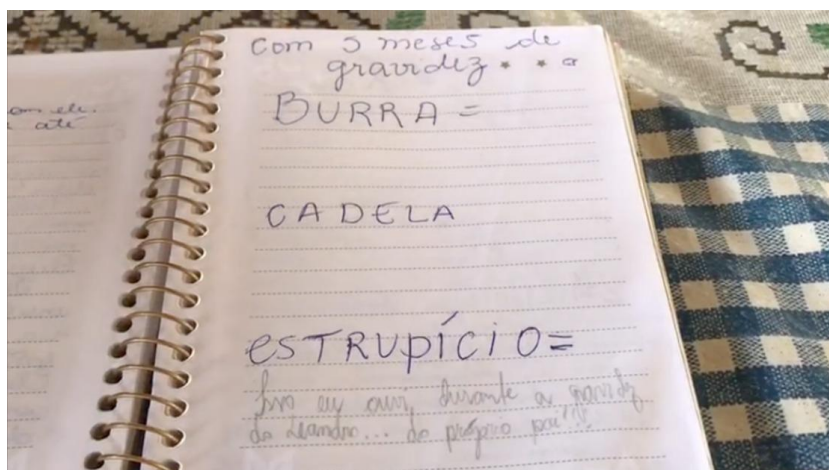 om ele.
até
com 5 meses de
gravidez...
BURRA =
CADELA
ESTRUPÍCIO=
Isso eu ouvi, durante a gravidez
do Leandro... do próprio pai!!!